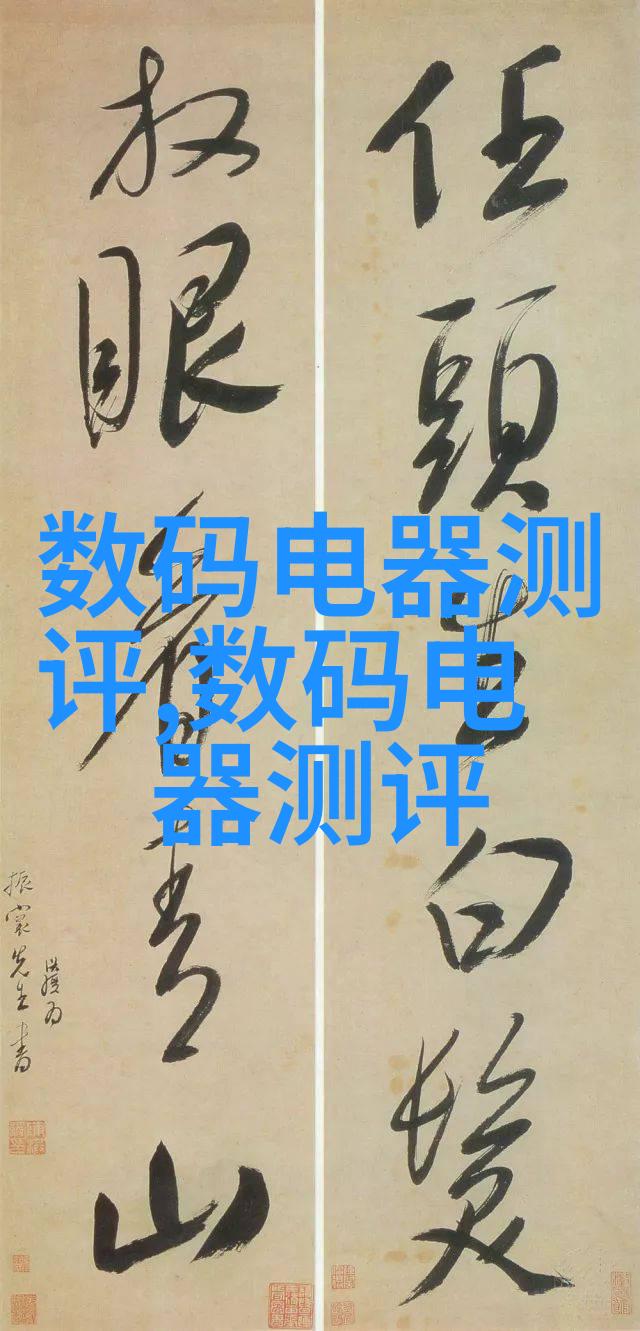 任頭生白髮
放眼看青山
先生書
数码电器测
评,数码电
器测评